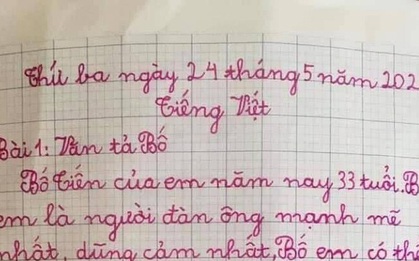 Thứ ba ngày 24 tháng 5 năm 202
Tiếng Việt
Bài 1: Văn tả Bố
Bố Tiến của em năm nay 33 tuổi. B
em là người đàn ông mạnh mẽ
nhất, dũng cảm nhất, Bố em có th